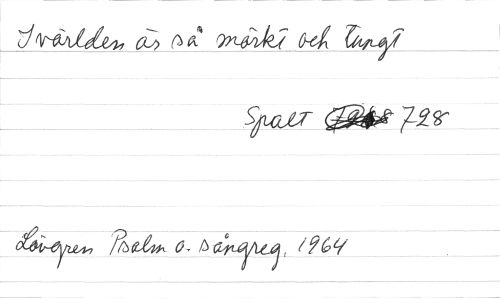 I världen är så mörkt och tungt
Spalt 728
Lövgren Psalm o. sångreg. 1964